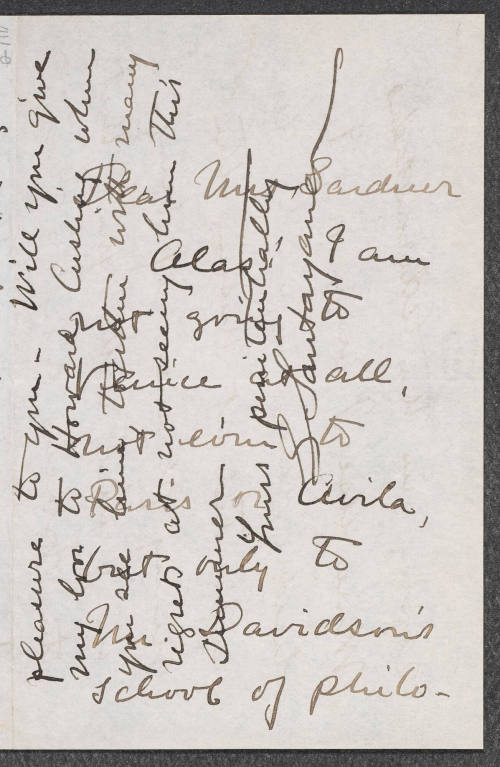 Dear Mrs Gardner
Alas, I am
not going to
Venice at all,
not even to
Paris or Avila,
but only to
Mr Davidson's
school of philo-
pleasure to you - Will you give
my love to Howard Cushing when
you see him with many
regrets at not seeing him this
summer
Yours penitentially
G Santayana